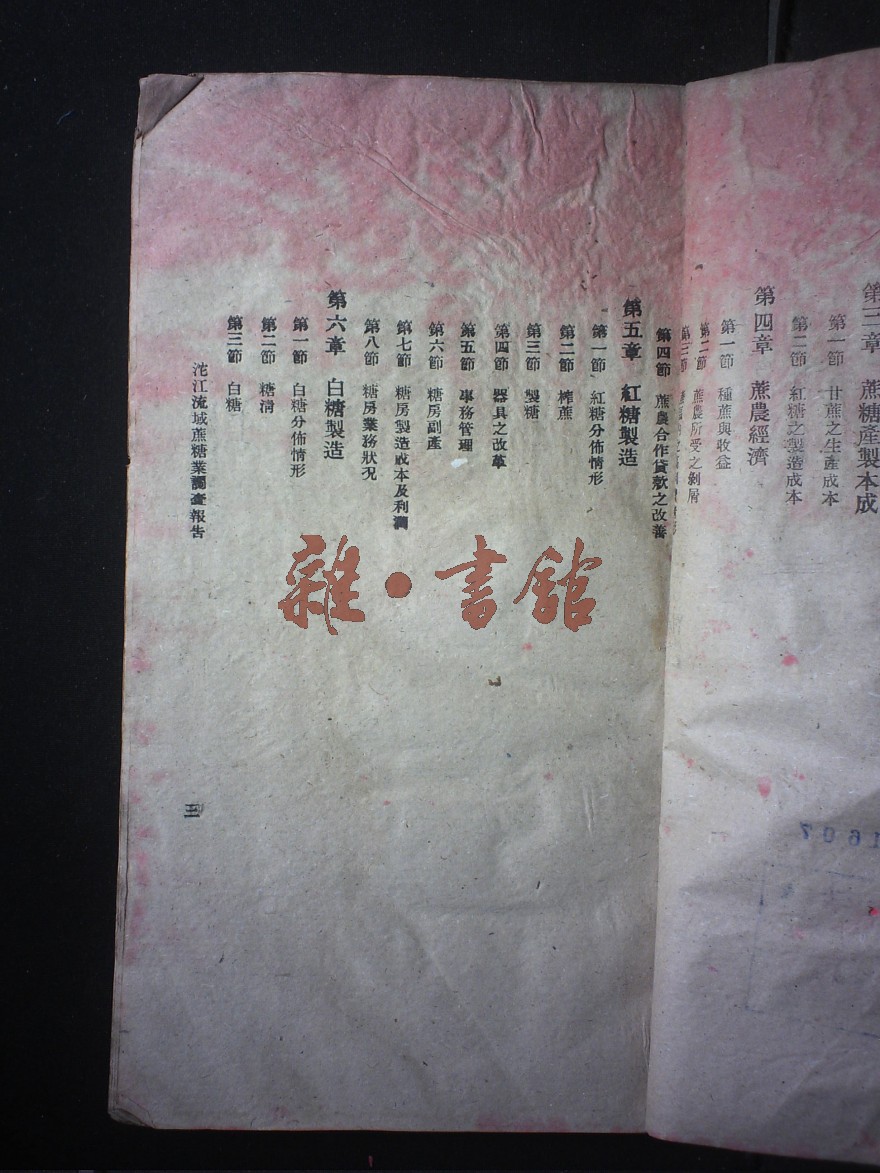 第三章　蔗糖產製本成
第一節　甘蔗之生產成本
第二節　紅糖之製造成本
第四章　蔗農經濟
第一節　種蔗與收益
第二節　蔗農所受之剝削
第三節
第四節　蔗農合作貸款之改善
第五章　紅糖製造
第一節　紅糖分佈情形
第二節　榨蔗
第三節　製糖
第四節　器具之改革
第五節　事務管理
第六節　糖房副產
第七節　糖房製造成本及利潤
第八節　糖房業務狀况
第六章　白糖製造
第一節　白糖分佈情形
第二節　糖清
第三節　白糖
沱江流域蔗糖業調查報告
三
雜·書館
1607